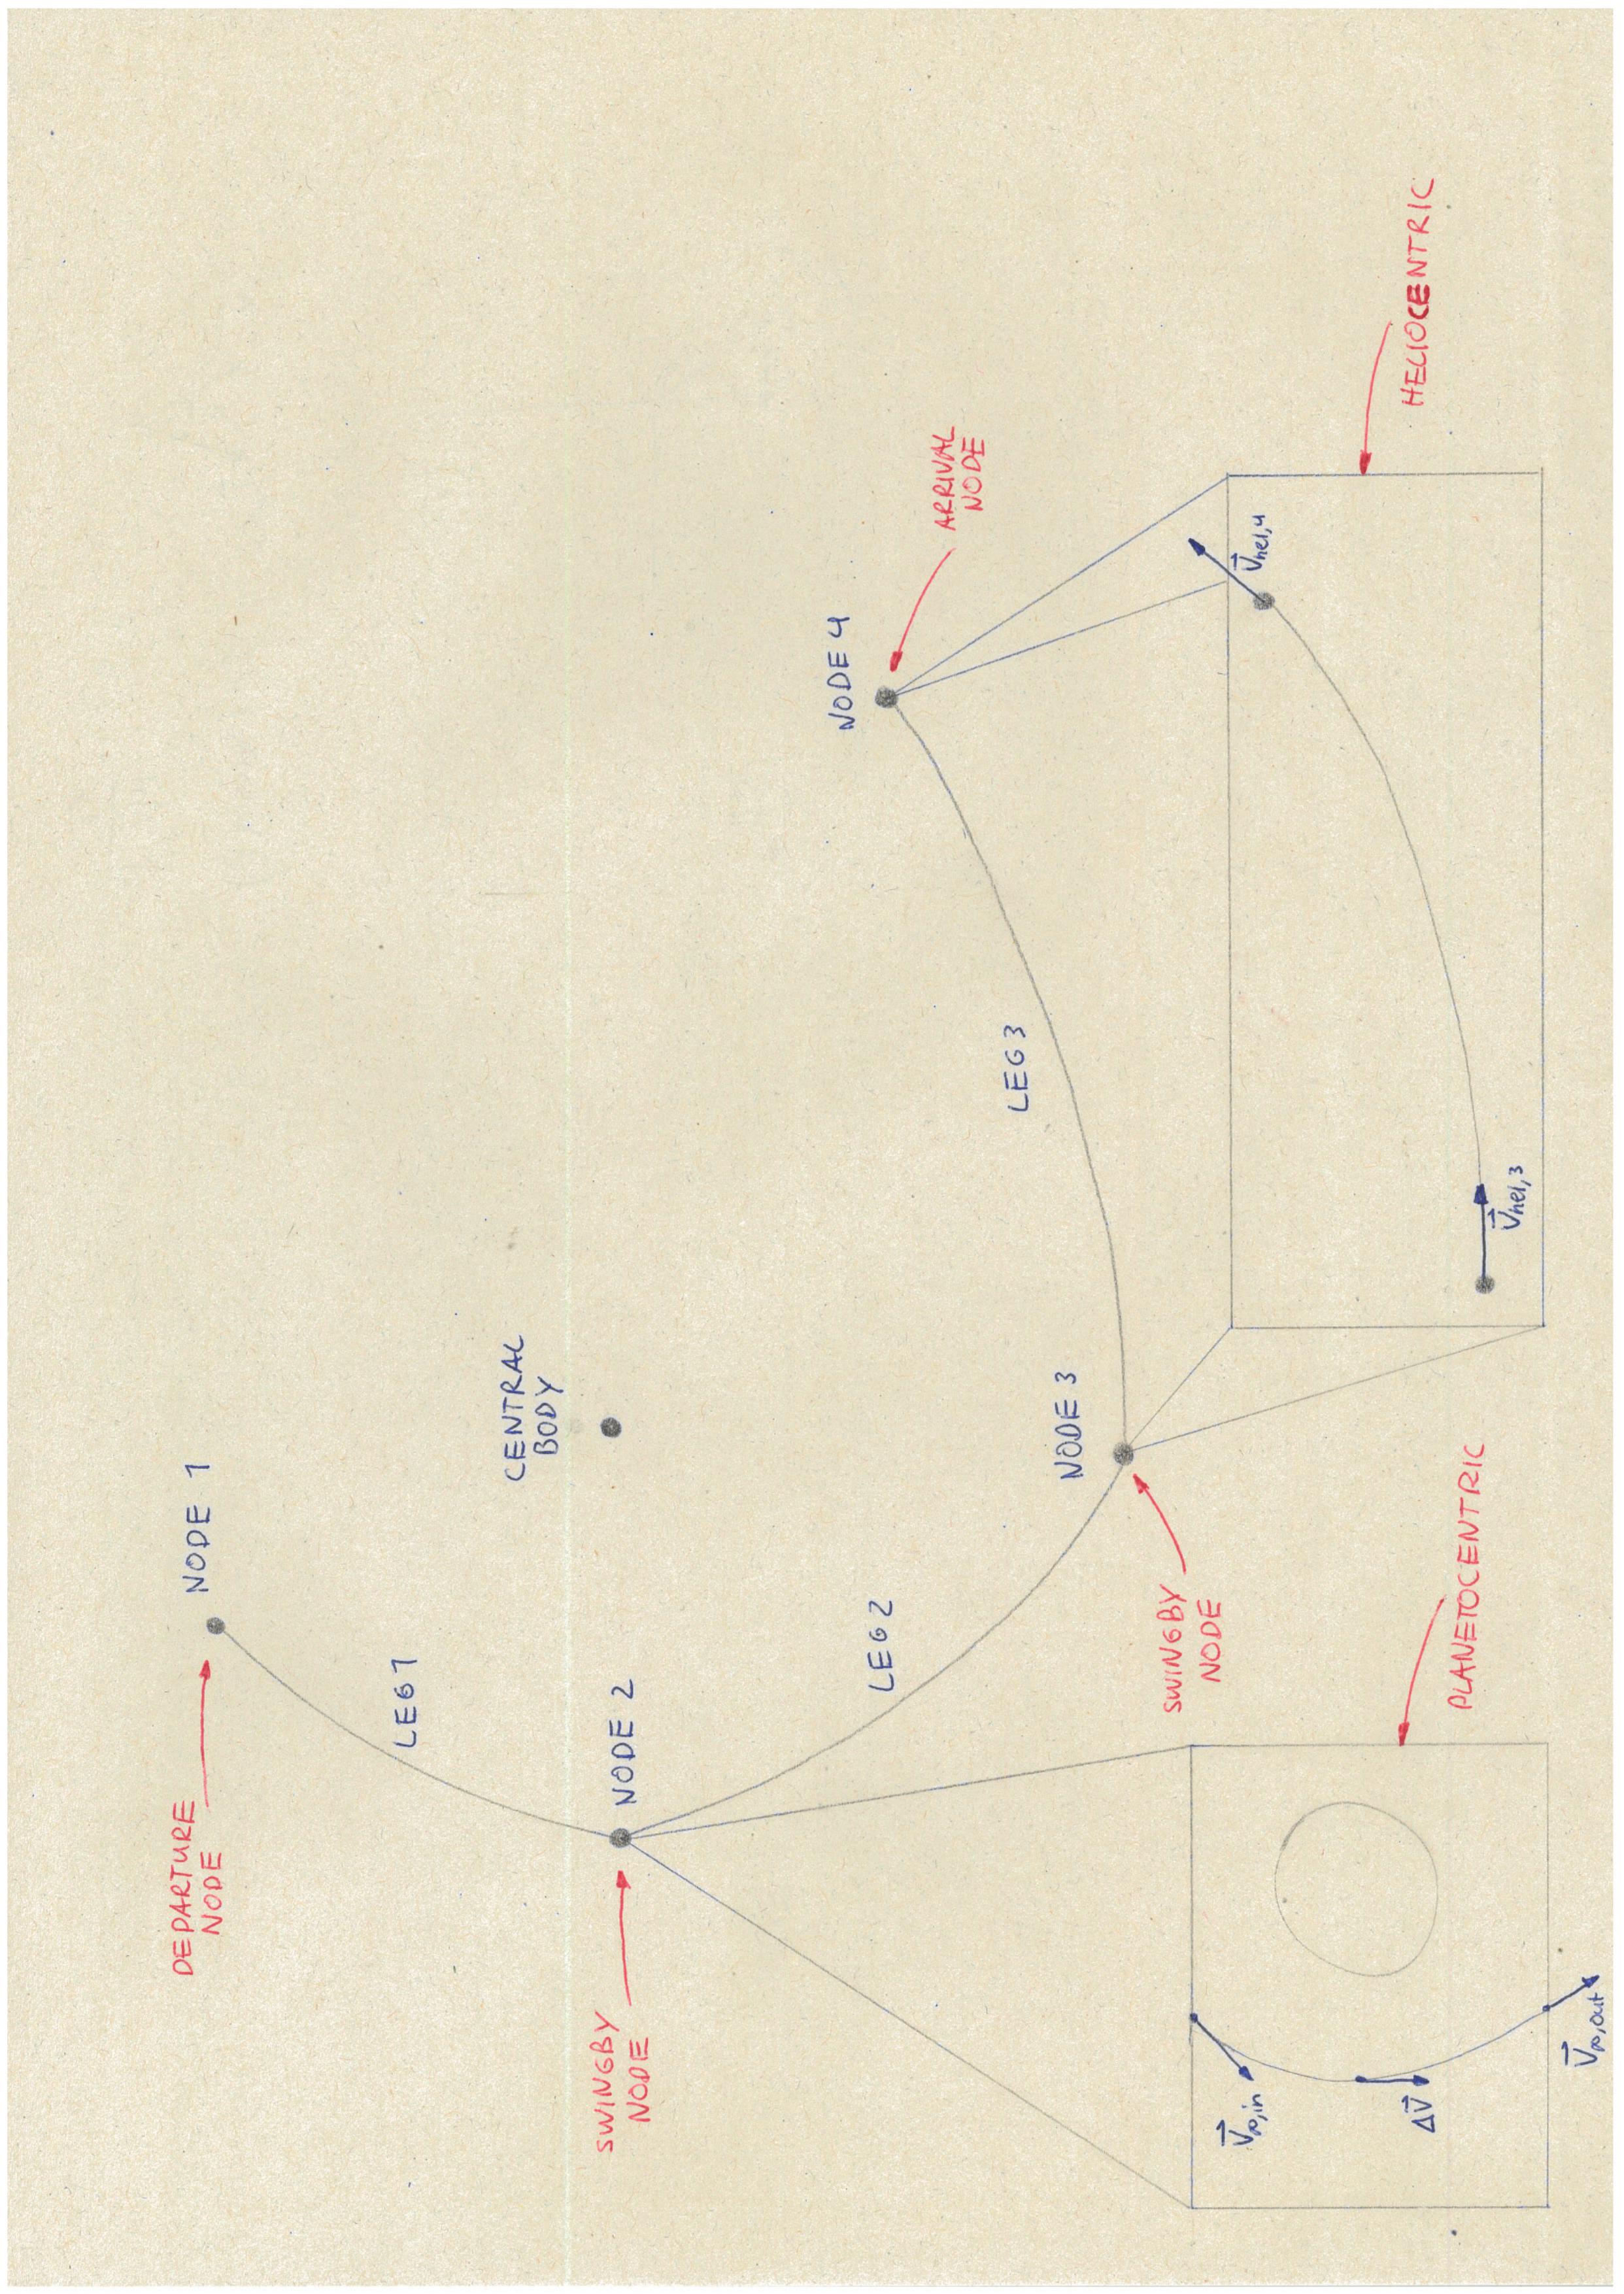 DEPARTURE
NODE
NODE 1
LEG1
CENTRAL
BODY
SWINGBY
NODE
NODE 2
LEG2
NODE 4
ARRIVAL
NODE
LEG3
NODE 3
SWINGBY
NODE
V∞,in
ΔV
V∞,out
PLANETOCENTRIC
Vhel,4
Vhel,3
HELIOCENTRIC